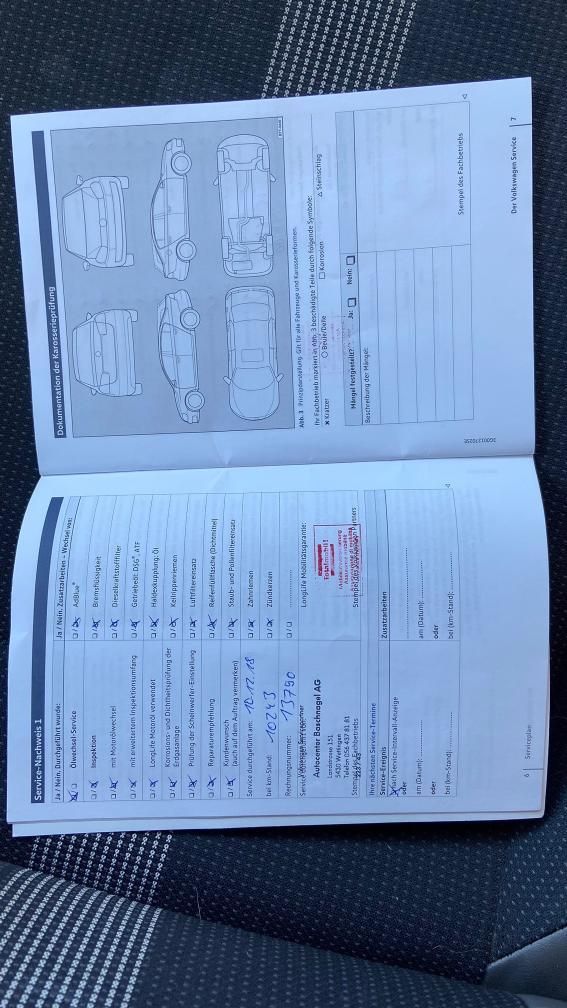 Service-Nachweis 1
Ja / Nein. Durchgeführt wurde:
Ölwechsel-Service
Inspektion
mit Motorölwechsel
mit erweitertem Inspektionsumfang
LongLife Motoröl verwendet
Korrosions- und Dichtheitsprüfung der
Erdgasanlage
Prüfung der Scheinwerfer-Einstellung
Reparaturempfehlung
Kundenwunsch
(auch auf dem Auftrag vermerken)
Service durchgeführt am: 10.12.18
bei km-Stand: 10243
Rechnungsnummer: 13790
Autocenter Baschnagel AG
Landstrasse 151
5430 Wettingen
Telefon 056 437 81 81
Stempel des Fachbetriebs
Ja / Nein. Zusatzarbeiten – Wechsel von:
AdBlue®
Bremsflüssigkeit
Dieselkraftstofffilter
Getriebeöl: DSG®, ATF
Haldexkupplung: Öl
Keilrippenriemen
Luftfiltereinsatz
Reifenfüllflasche (Dichtmittel)
Staub- und Pollenfiltereinsatz
Zahnriemen
Zündkerzen
LongLife Mobilitätsgarantie:
Totalmobil!
Ihre nächsten Service-Termine
Service-Ereignis
nach Service-Intervall-Anzeige
oder
am (Datum):
oder
bei (km-Stand):
Zusatzarbeiten
am (Datum):
oder
bei (km-Stand):
6 Serviceplan
Dokumentation der Karosserieprüfung
Abb. 3 Prinzipdarstellung. Gilt für alle Fahrzeuge und Karosserieformen.
Ihr Fachbetrieb markiert in Abb. 3 beschädigte Teile durch folgende Symbole:
✖ Kratzer ○ Beule/Delle □ Korrosion △ Steinschlag
Mängel festgestellt? Ja: Nein:
Beschreibung der Mängel:
Stempel des Fachbetriebs
Der Volkswagen Service 7